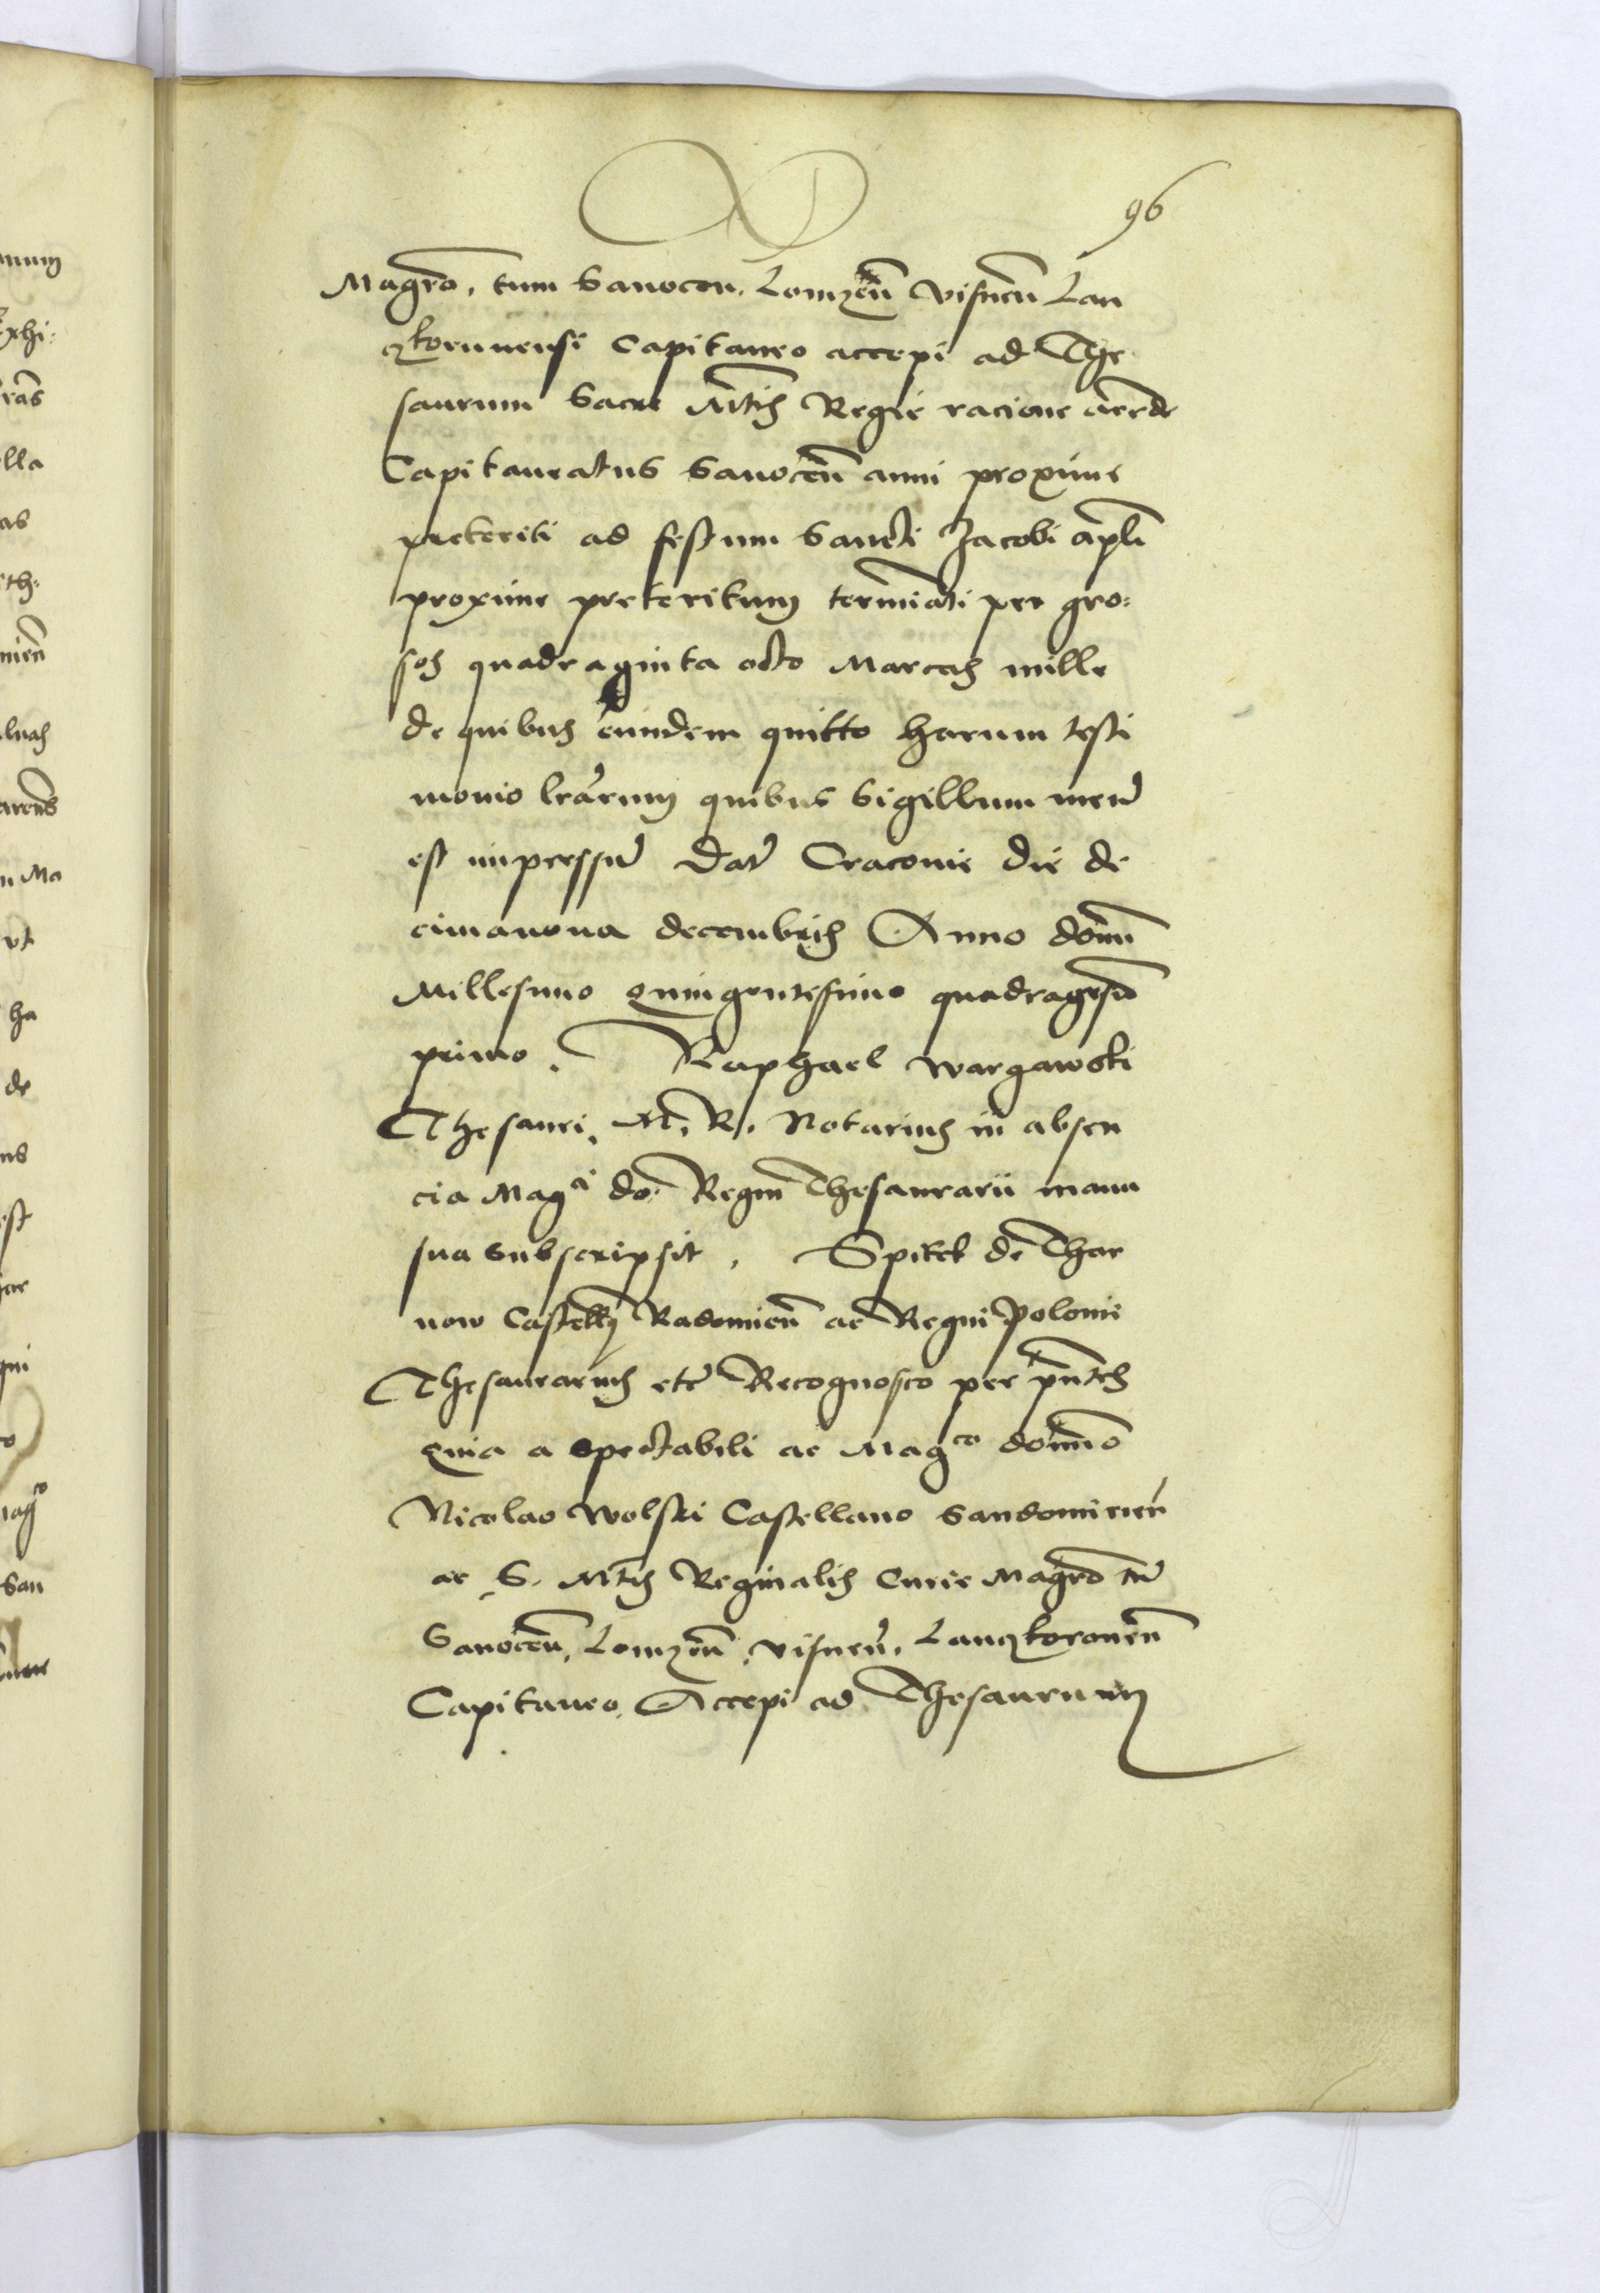 96
Magr̄o, tum Sanocen. Lomzen̄ Visnen̄ Lan
czkorunensi Capitaneo accepi ad The
saurum Sacre M̄tis Regie racione arende
Capitaneatus Sanocen̄ anni proxime
preteriti ad festum Sancti Jacobi ap̄li
proxime preteritum termin̄ati per gro:
sos quadraginta octo Marcas mille
de quibus eundem quitto harum testi
monio l̄rarum quibus Sigillum meū
est impressū Datˀ Cracovie die de
cimanona decembris Anno domn̄
Millesimo quingentesimo quadrages̄o
primo. Raphael Wargawski
Thesauri. M. R. Notarius in absen
cia Magci do. Regni Thesaurarii manu
sua subscripsit. Spitek de Thar
now Castell̄ Radomien̄ ac Regni Poloniē
Thesaurarius etc̄ Recognosco per p̄ntes
quia a Spectabili ac Magco domn̄o
Nicolao Wolski Castellano Sandomirien̄
ac S. M̄tis Reginalis Curie Magr̄o tū
Sanocen̄. Lomzen̄. visnen̄. Lanczkoronen̄
Capitaneo. Accepi ad Thesaurum